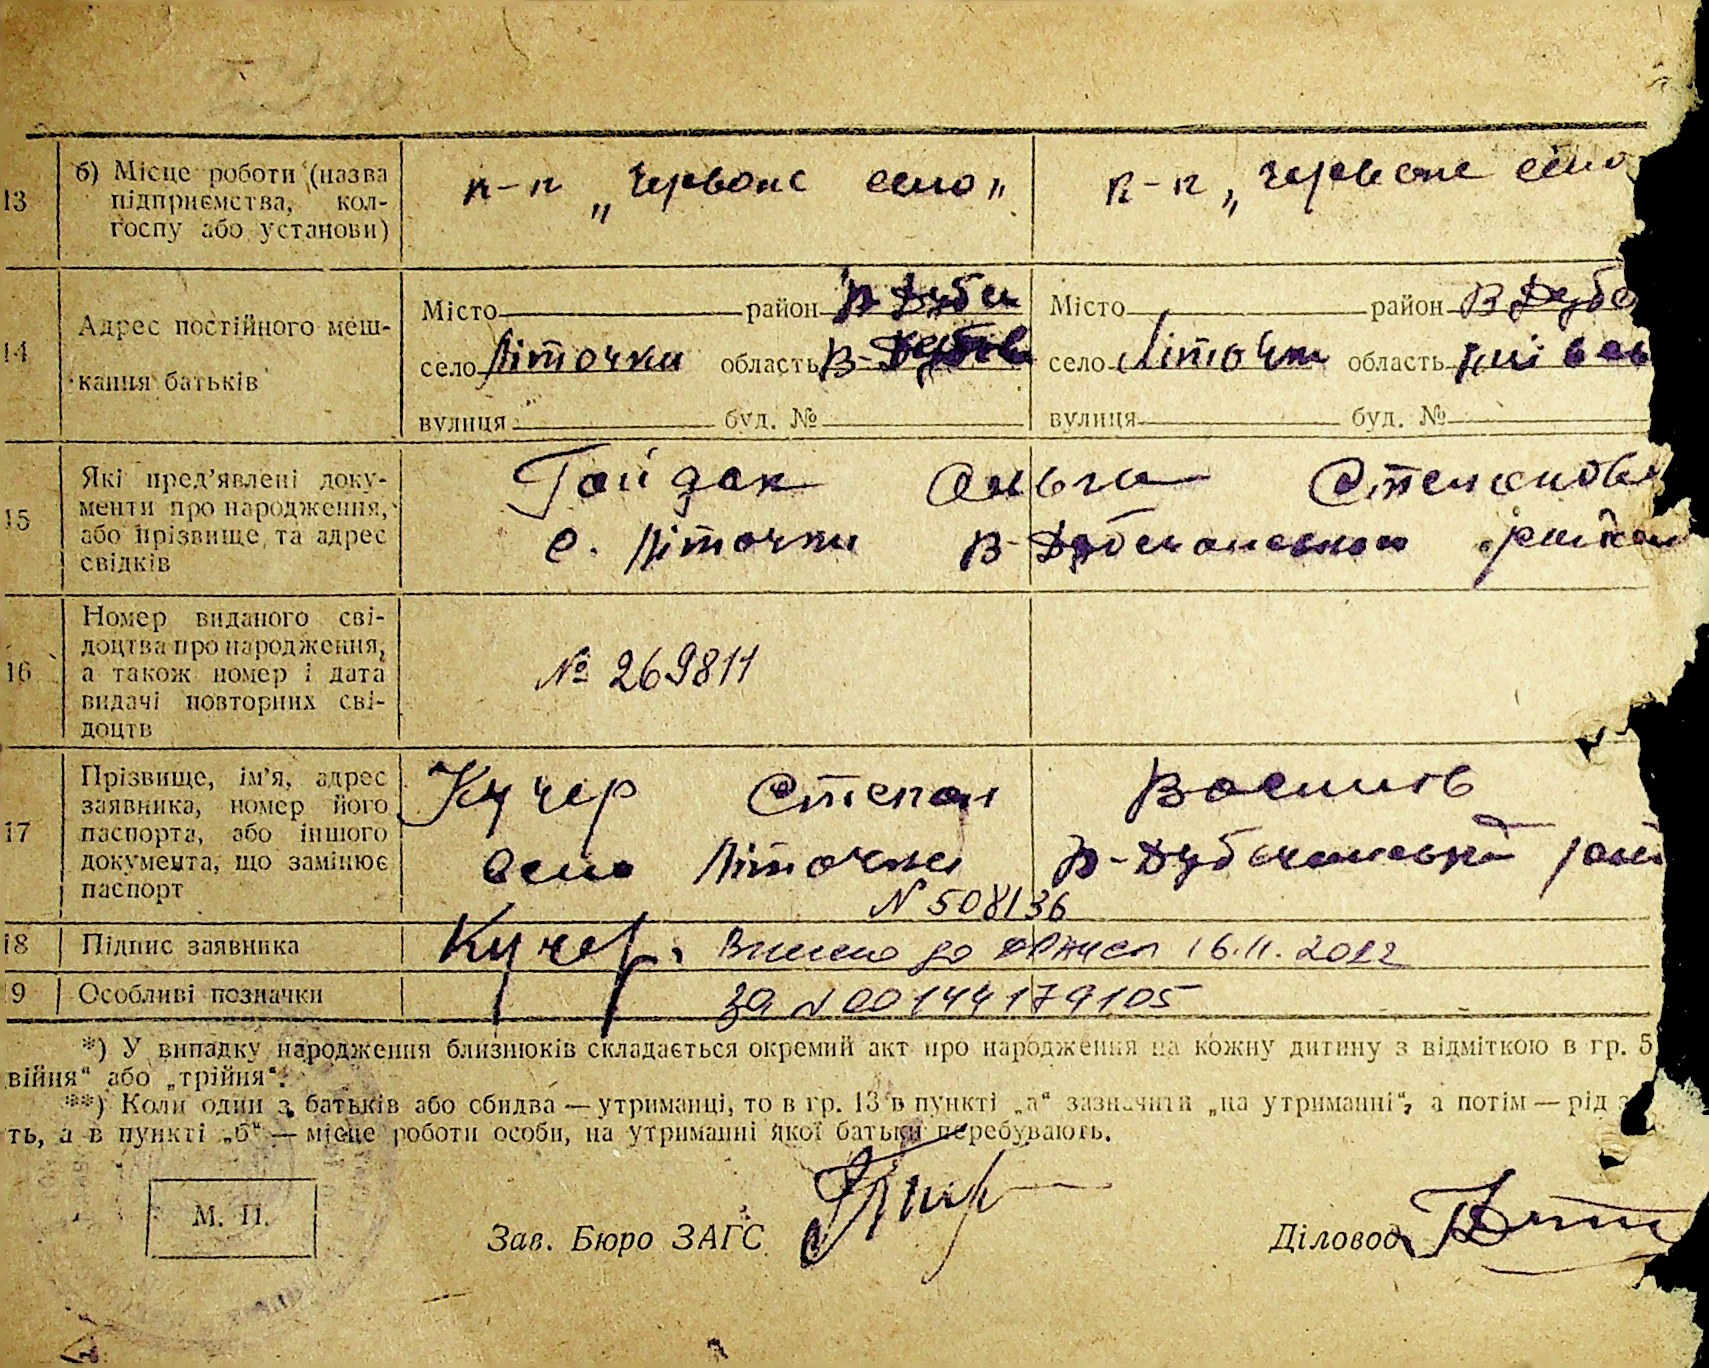 13 б) Місце роботи (назва підприємства, колгоспу або установи) к-п „Червоне село" к-п „Червоне село
14 Адрес постійного мешкання батьків
Місто район В Дубе Місто район В Дубе
село Літочки область село Літочки область Київськ
вулиця буд. № вулиця буд. №
15 Які пред'явлені документи про народження, або прізвище та адрес свідків
Гайдак Ольга Степановна
с. Літочки В-Дубечанського район
16 Номер виданого свідоцтва про народження, а також номер і дата видачі повторних свідоцтв
№ 269811
17 Прізвище, ім'я, адрес заявника, номер його паспорта, або іншого документа, що замінює паспорт
Кучер Степан Василь
село Літочки В-Дубечанський рай
N 508136
18 Підпис заявника Кучер. Внесено до ДРАЦСГ 16.11.2022
9 Особливі позначки за N 00144179105
*) У випадку народження близнюків складається окремий акт про народження на кожну дитину з відміткою в гр. 5
війня" або „трійня".
**) Коли один з батьків або обидва — утриманці, то в гр. 13 в пункті „а" зазначити „на утриманні", а потім — рід з
ть, а в пункті „б" — місце роботи особи, на утриманні якої батьки перебувають.
М. П.
Зав. Бюро ЗАГС Діловод